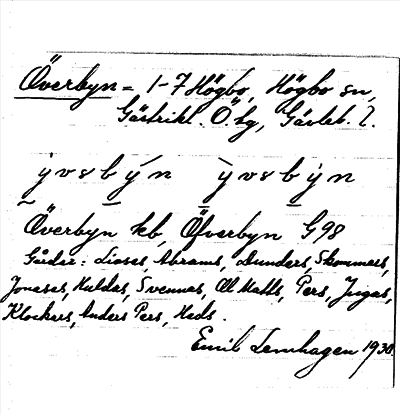 Överbyn = 1-7 Högbo, Högbo sn,
Gästrikl. Ö tg, Gävleb. l.
ẏvsbýn ỳvsbẏn
Överbyn kb, Öfverbyn G98
Gårdar: Liases, Abrams, Dunders, Skommars,
Jonases, Huldas, Svennas, Ol Matts, Pers, Jugas,
Klockars, Anders Pers, Heds.
Emil Lemhagen 1930.